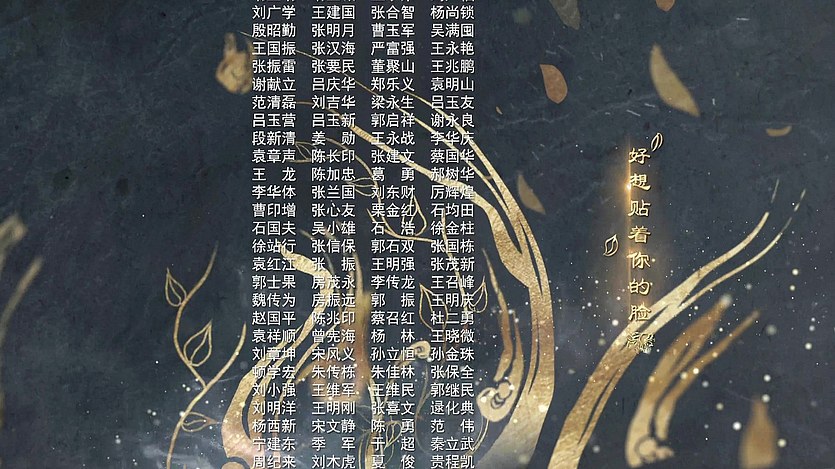 刘广学 王建国 张合智 杨尚锁
殷昭勤 张明月 曹玉军 吴满囤
王国振 张汉海 严富强 王永艳
张振雷 张要民 董聚山 王兆鹏
谢献立 吕庆华 郑乐义 袁明山
范清磊 刘吉华 梁永生 吕玉友
吕玉营 吕玉新 郭启祥 谢永良
段新清 姜 勋 王永战 李华庆
袁章声 陈长印 张建文 蔡国华
王 龙 陈加忠 葛 勇 郝树华
李华体 张兰国 刘东财 厉辉煌
曹印增 张心友 栗金红 石均田
石国夫 吴小雄 石 浩 徐金柱
徐站行 张信保 郭石双 张国栋
袁红江 张 振 王明强 张茂新
郭士果 房茂永 李传龙 王召峰
魏传为 房振远 郭 振 王明庆
赵国平 陈兆印 蔡召红 杜二勇
袁祥顺 曾宪海 杨 林 王晓微
刘章坤 宋风义 孙立恒 孙金珠
顿学宏 朱传栋 朱佳林 张保全
刘小强 王维军 王维民 郭继民
刘明洋 王明刚 张喜文 逯化典
杨西新 宋文静 陈 勇 范 伟
宁建东 季 军 于 超 秦立武
周纪来 刘木虎 夏 俊 贵程凯
好想贴着你的脸